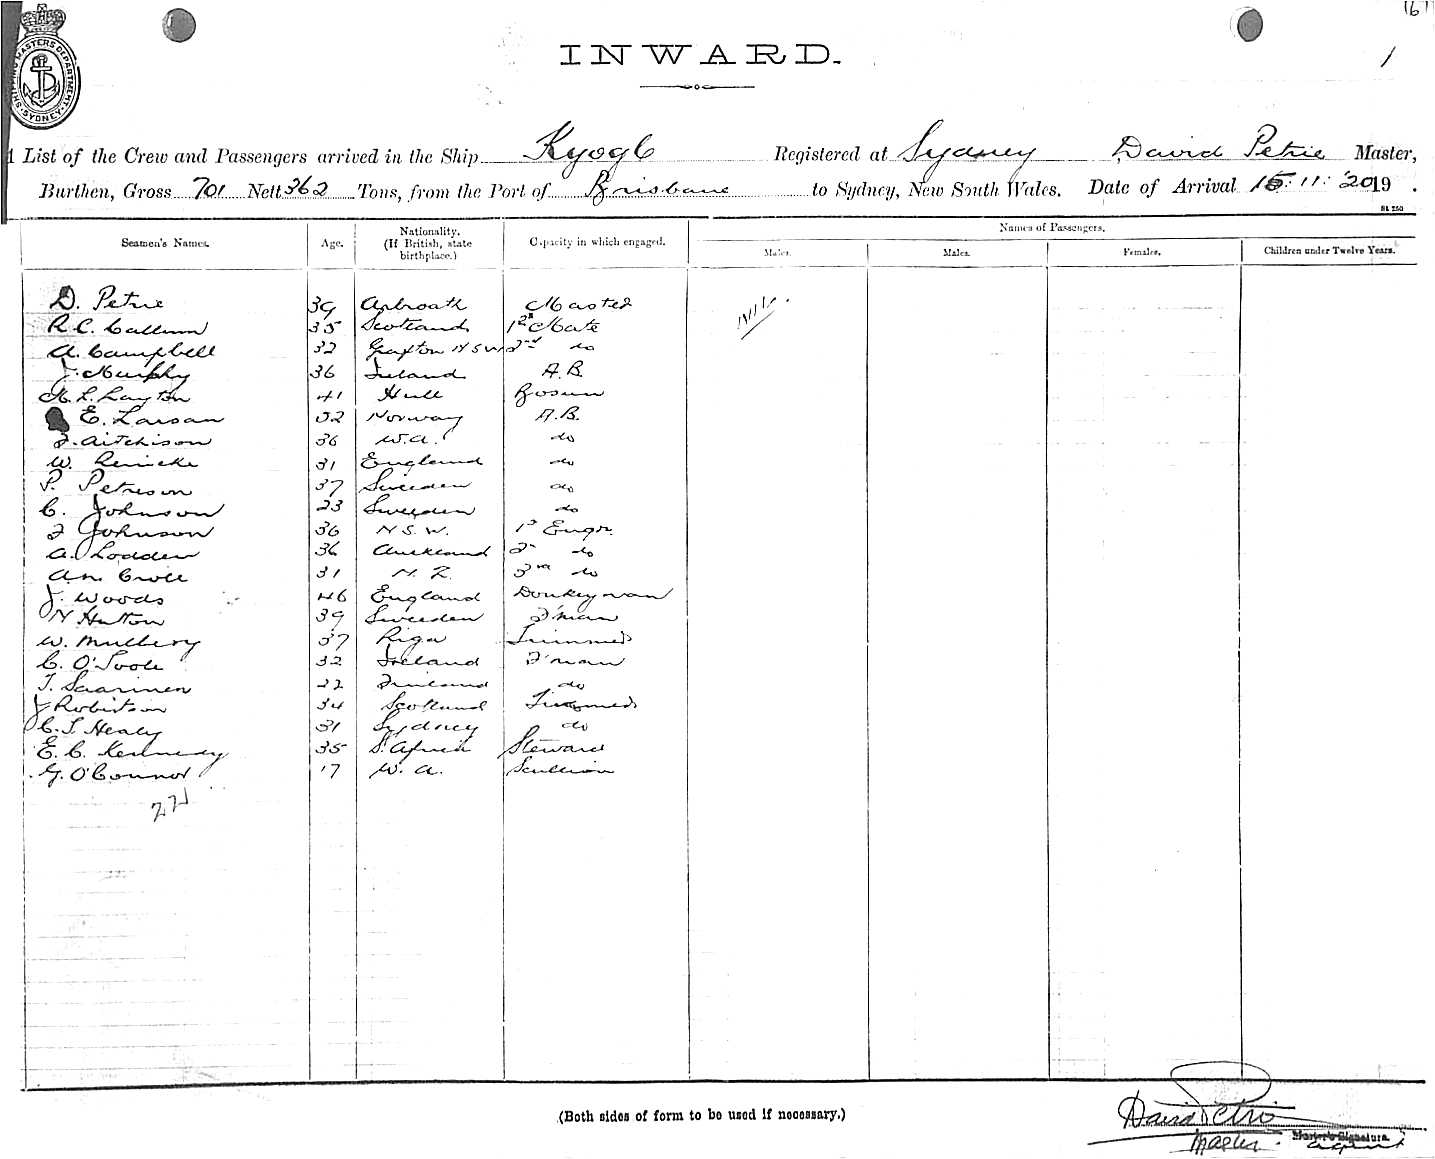 161
INWARD.
1
SHIPPING MASTERS DEPARTMENT SYDNEY
List of the Crew and Passengers arrived in the Ship Kyogle Registered at Sydney David Petrie Master,
Burthen, Gross 701 Nett 362 Tons, from the Port of Brisbane to Sydney, New South Wales. Date of Arrival 15.11.2019.
Seamen's Names. Age. Nationality. (If British, state birthplace.) Capacity in which engaged. Names of Passengers.
Males. Males. Females. Children under Twelve Years.
D. Petrie 39 Arbroath Master
R.C. Callum 35 Scotland 1st Mate
A. Campbell 32 Grafton NSW 2nd do
J. Murphy 36 Ireland A.B.
M. L. Layton 41 Hull Bosun
E. Larsan 52 Norway A.B.
F. Aitchison 36 W.A. do
W. Reincke 31 England do
P. Petreson 37 Sweeden do
C. Johnson 23 Sweeden do
J Johnson 36 N.S.W. 1st Engr.
A. Lodden 36 Auckland 2nd do
A.M. Croll 31 N.Z. 3rd do
J. Woods 46 England Donkeyman
N Hutton 39 Sweeden F'man
W. Mulbery 37 Riga Trimmer
C. O'Toole 32 Ireland F'man
T. Saarinen 22 Finland do
J Robertson 34 Scotland Trimmer
C. S. Healy 31 Sydney do
E. C. Kennedy 35 S. Africa Steward
G. O'Connor 17 W.A. Scullion
22
(Both sides of form to be used if necessary.)
David Petrie
Master. Master's Signature.